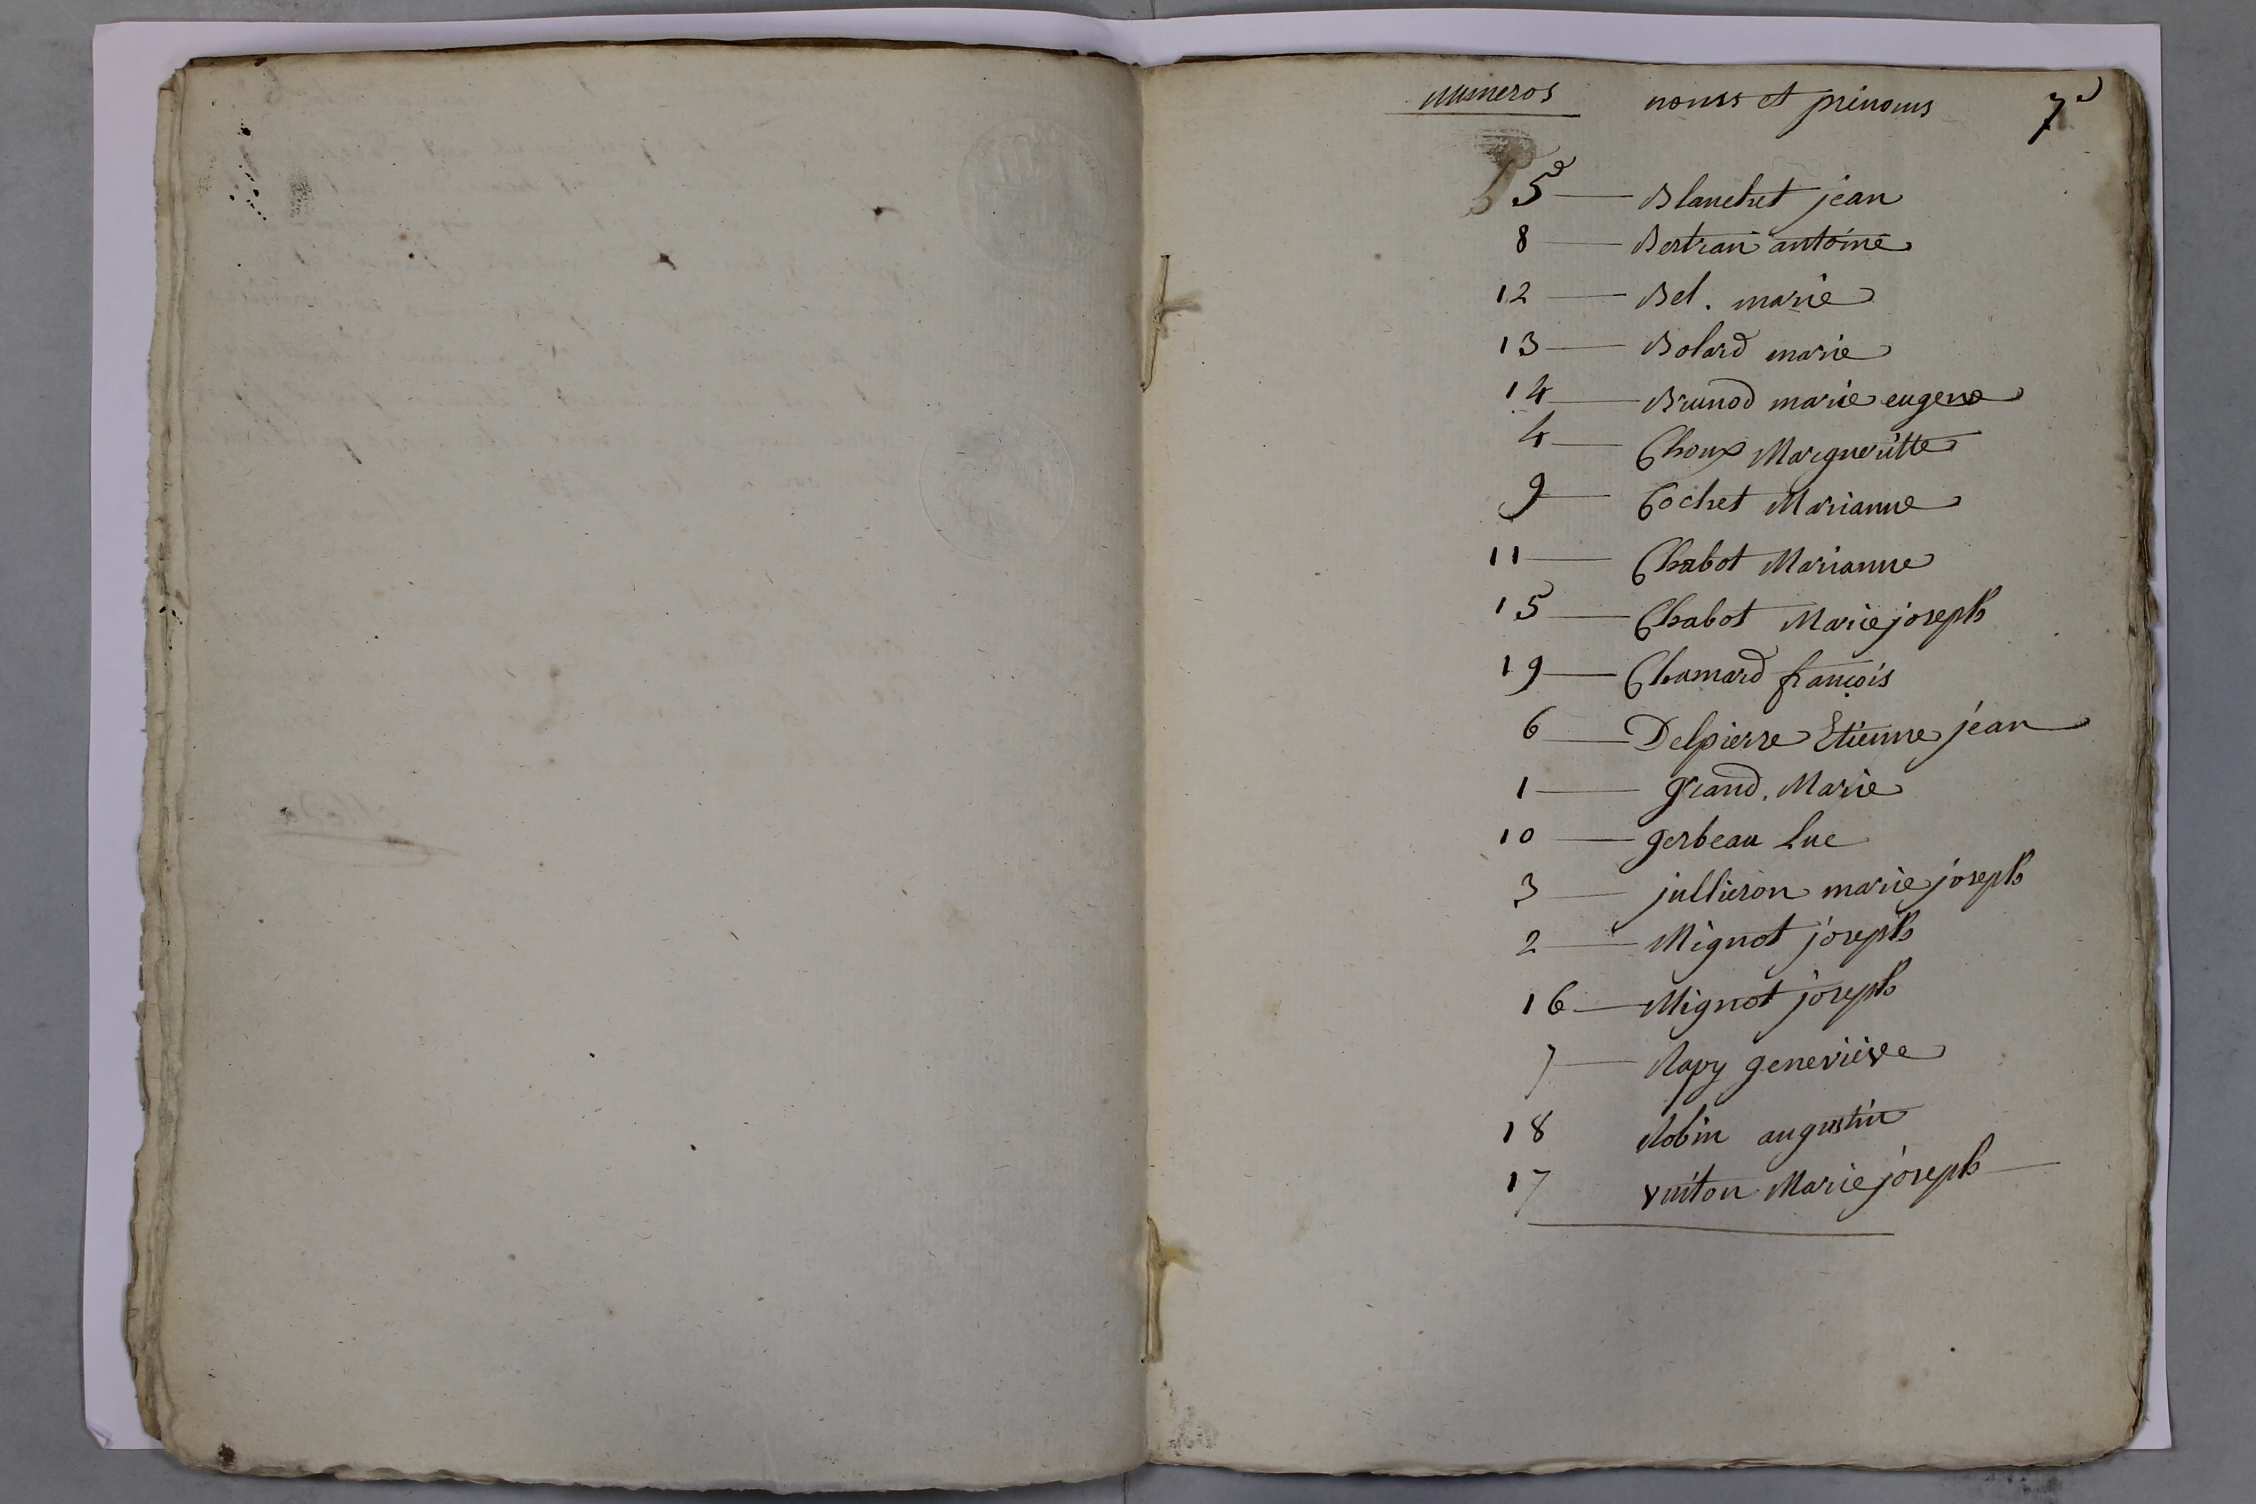 numeros noms et prénoms 7
5 — Blanchet jean
8 — Bertran antoine
12 — Bel. marie
13 — Bolard marie
14 — Brunod marie eugene
4 — Choux Margueritte
9 — Cochet Marianne
11 — Chabot Marianne
15 — Chabot Marie joseph
19 — Chamard françois
6 — Delpierre Etienne jean
1 — grand. Marie
10 — gerbeau Luc
3 — jullieron marie joseph
2 — Mignot joseph
16 — Mignot joseph
7 — Rapy geneviève
18 Robin augustin
17 vuiton Marie joseph